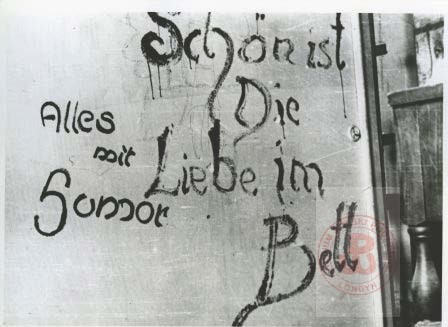 Schön ist
Die
Liebe im
Bett
Alles
mit
Humor